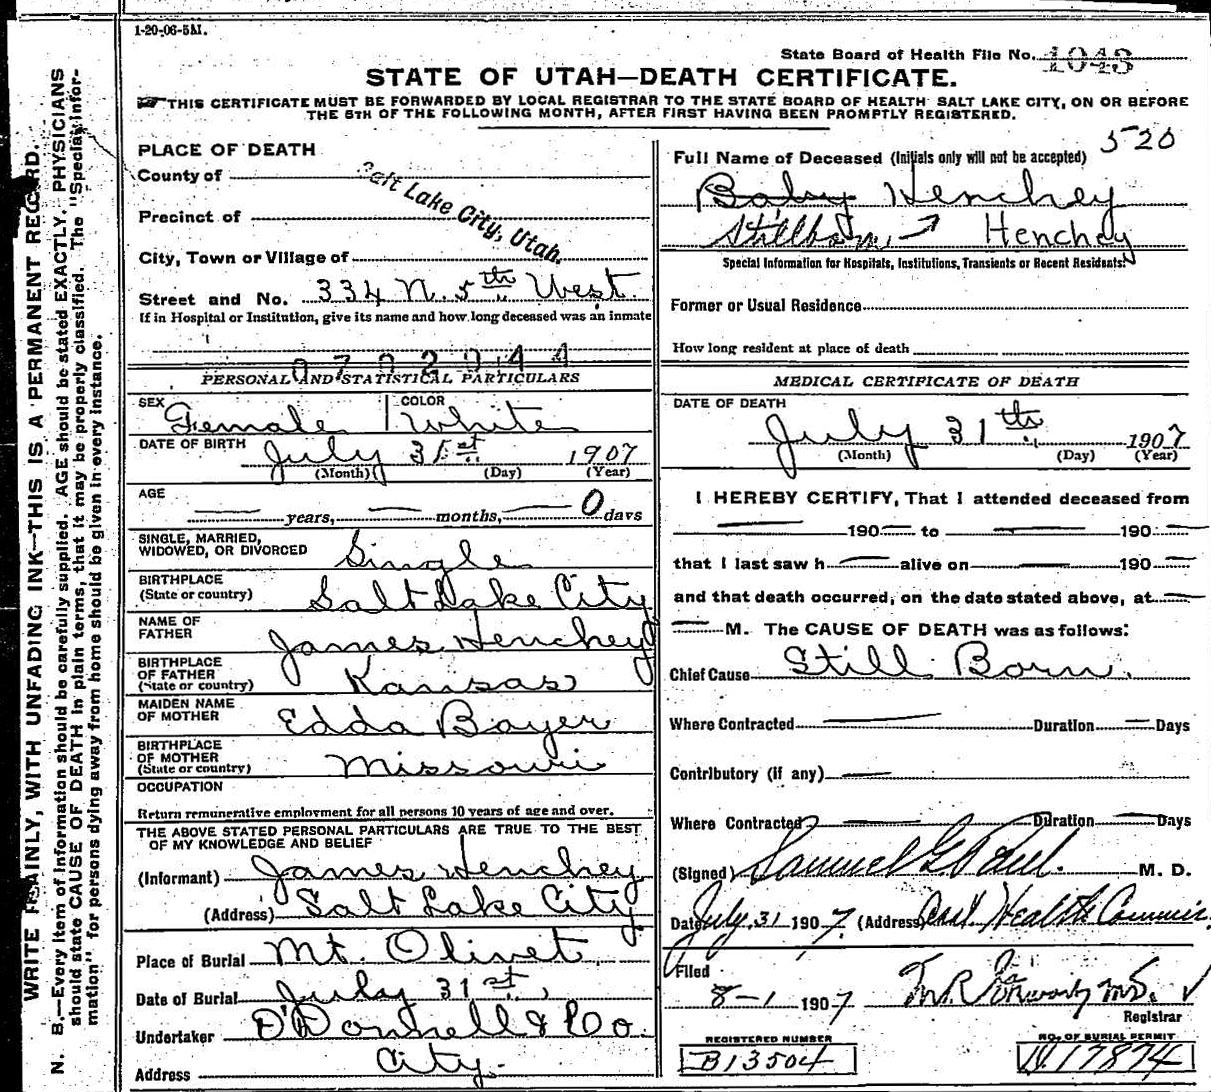 1-20-06-5M.
State Board of Health File No. 1043
STATE OF UTAH—DEATH CERTIFICATE.
THIS CERTIFICATE MUST BE FORWARDED BY LOCAL REGISTRAR TO THE STATE BOARD OF HEALTH SALT LAKE CITY, ON OR BEFORE
THE 5TH OF THE FOLLOWING MONTH, AFTER FIRST HAVING BEEN PROMPTLY REGISTERED.
WRITE PLAINLY, WITH UNFADING INK—THIS IS A PERMANENT RECORD.
N. B.—Every item of information should be carefully supplied. AGE should be stated EXACTLY. PHYSICIANS
should state CAUSE OF DEATH in plain terms, that it may be properly classified. The "Special Infor-
mation" for persons dying away from home should be given in every instance.
PLACE OF DEATH
County of
Salt Lake City, Utah.
Precinct of
City, Town or Village of
Street and No. 334 N. 5th West.
If in Hospital or Institution, give its name and how long deceased was an inmate
PERSONAL AND STATISTICAL PARTICULARS
SEX Female COLOR White
DATE OF BIRTH July 31st 1907
(Month) (Day) (Year)
AGE
years, months, 0 days
SINGLE, MARRIED,
WIDOWED, OR DIVORCED Single
BIRTHPLACE
(State or country) Salt Lake City
NAME OF
FATHER James Henchey
BIRTHPLACE
OF FATHER
(State or country) Kansas
MAIDEN NAME
OF MOTHER Edda Bayer
BIRTHPLACE
OF MOTHER
(State or country) Missouri
OCCUPATION
Return remunerative employment for all persons 10 years of age and over.
THE ABOVE STATED PERSONAL PARTICULARS ARE TRUE TO THE BEST
OF MY KNOWLEDGE AND BELIEF
(Informant) James Henchey
(Address) Salt Lake City
Place of Burial Mt. Olivet
Date of Burial July 31st,
Undertaker O'Donnell & Co.
Address City.
520
Full Name of Deceased (Initials only will not be accepted)
Baby Henchey
Stillborn, Henchey
Special Information for Hospitals, Institutions, Transients or Recent Residents:
Former or Usual Residence
How long resident at place of death
MEDICAL CERTIFICATE OF DEATH
DATE OF DEATH
July 31th 1907
(Month) (Day) (Year)
I HEREBY CERTIFY, That I attended deceased from
190 to 190
that I last saw h alive on 190
and that death occurred, on the date stated above, at
M. The CAUSE OF DEATH was as follows:
Chief Cause Still Born.
Where Contracted Duration Days
Contributory (if any)
Where Contracted Duration Days
(Signed) Samuel G. Paul. M. D.
Date July 31 1907. (Address) Health Commis
Filed
8-1 1907 M.D.
Registrar
REGISTERED NUMBER
B13504
NO. OF BURIAL PERMIT
17874